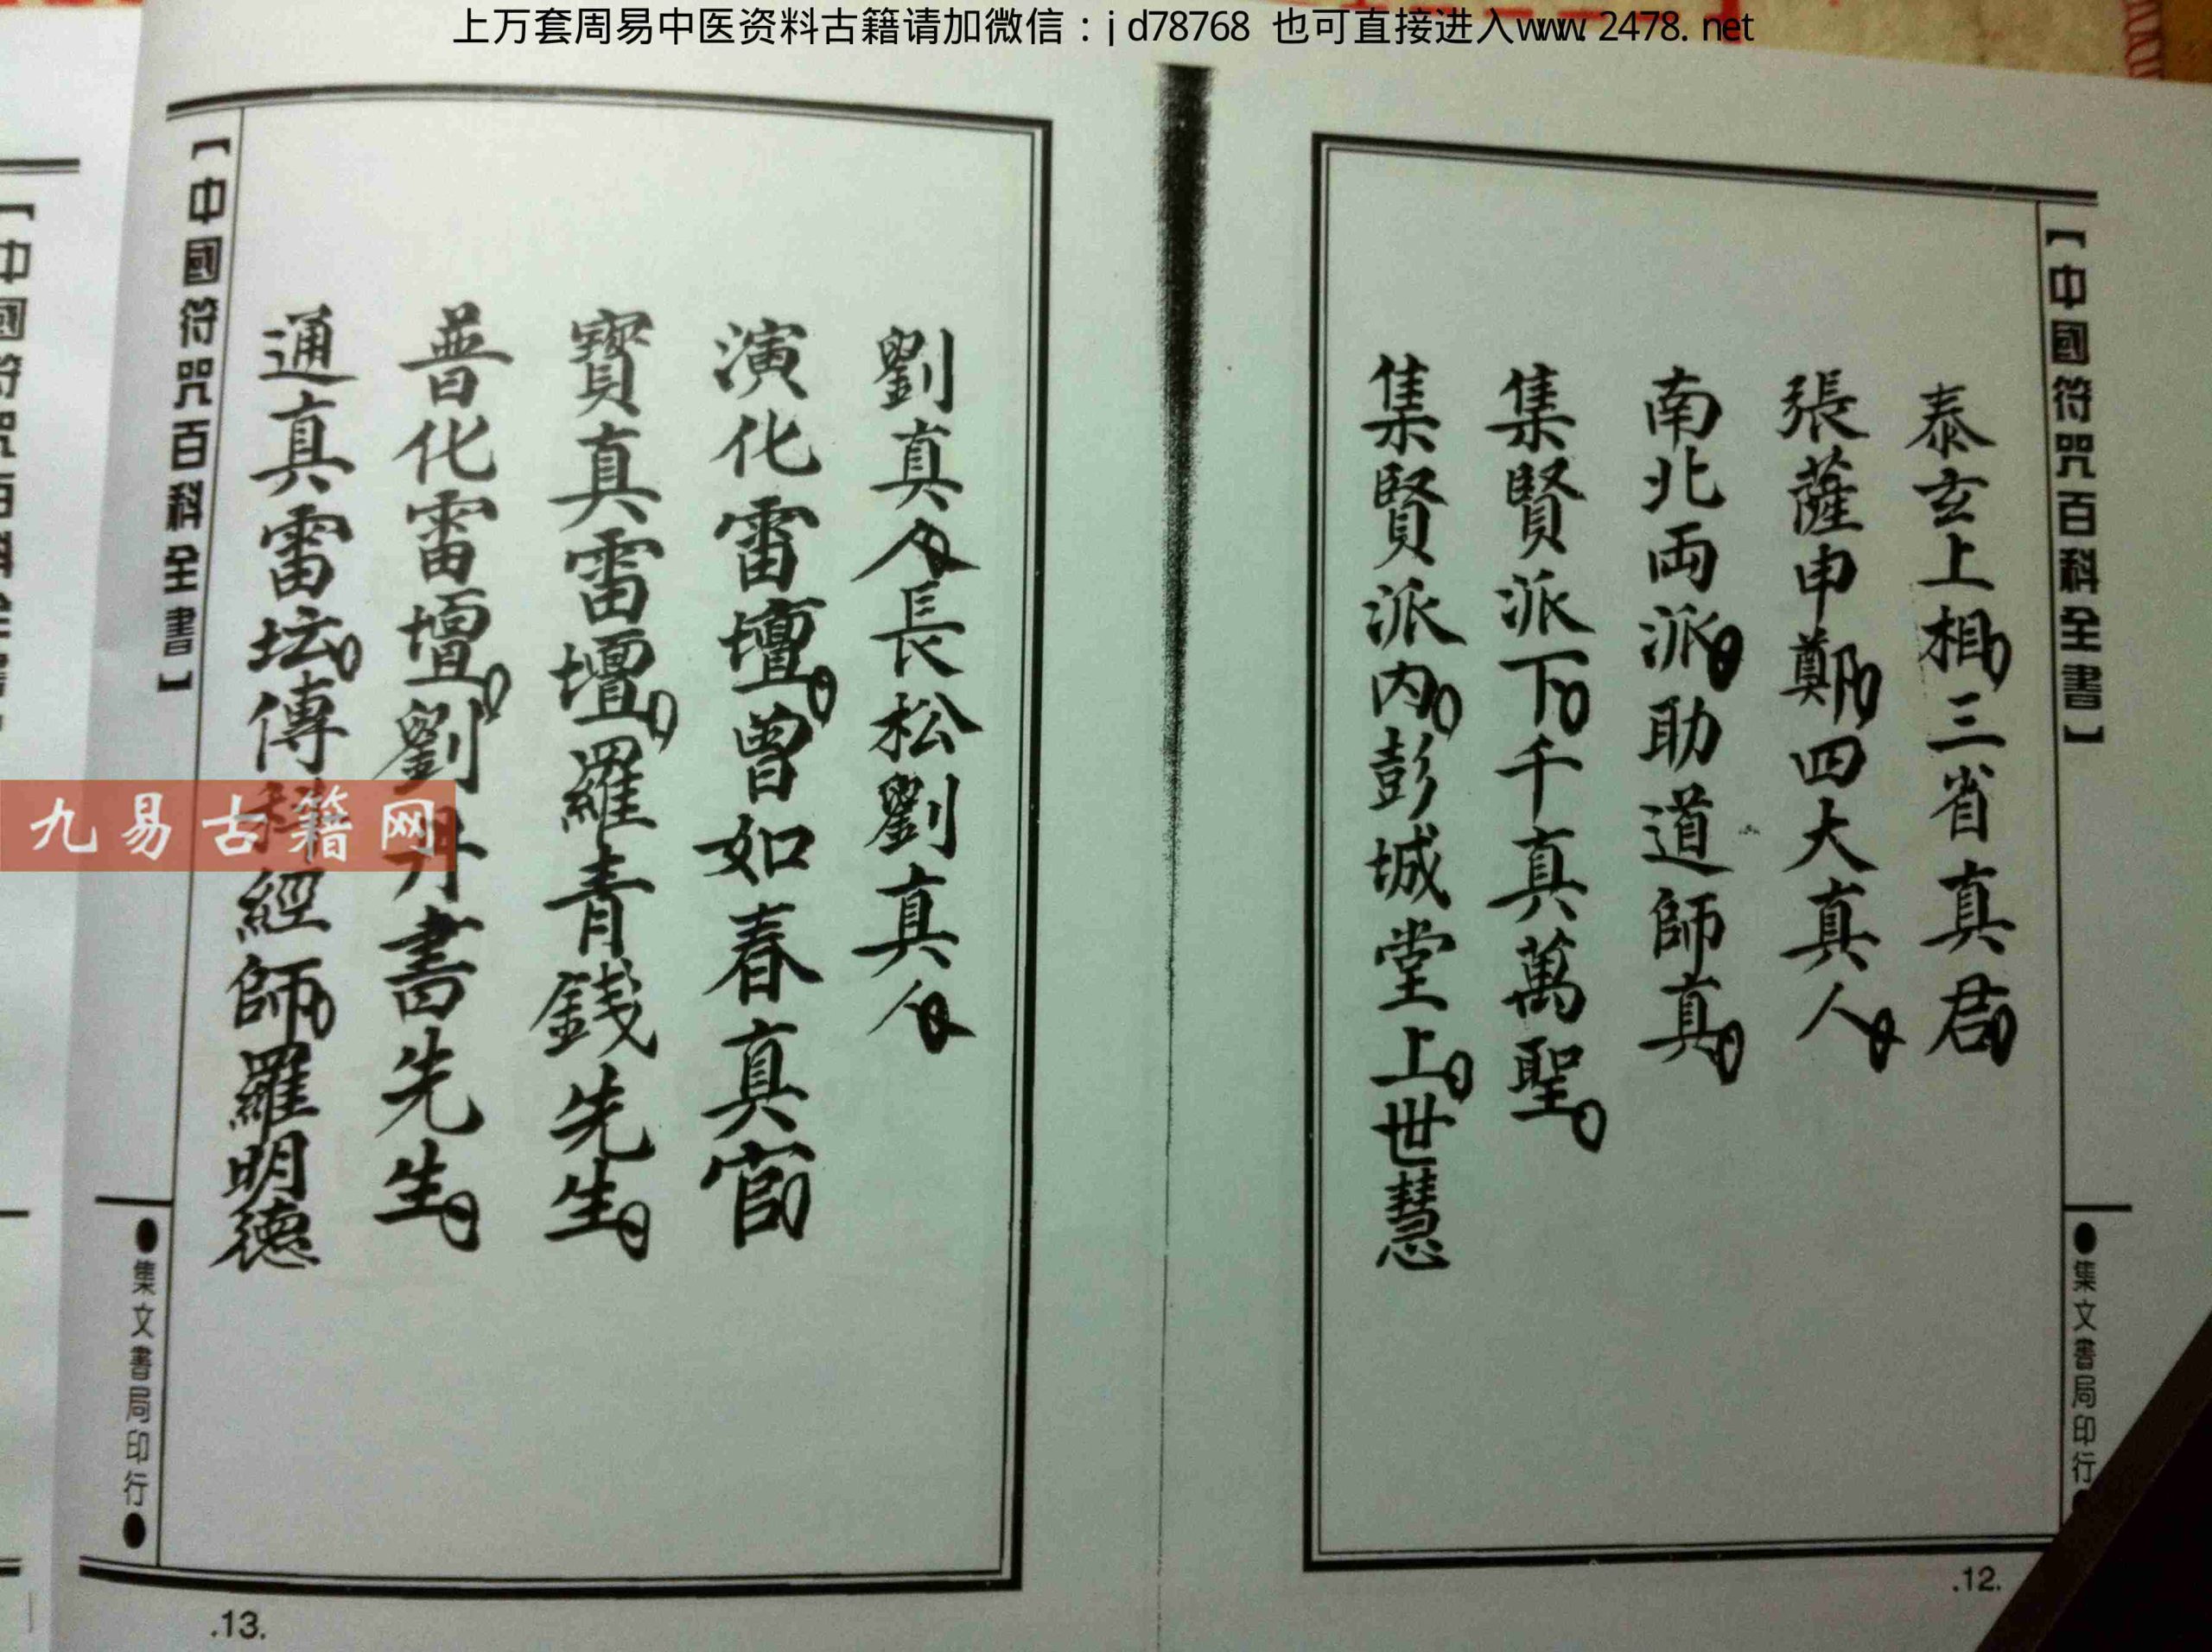 上万套周易中医资料古籍请加微信：jd78768 也可直接进入www.2478.net
【中國符咒百科全書】
泰玄上相。三省真君。
張薩申鄭。四大真人。
南北両派。助道師真。
集賢派下。千真萬聖。
集賢派内。彭城堂上。世慧
●集文書局印行●
.12.
劉真人。長松劉真人。
演化雷壇。曾如春真官。
寶真雷壇。羅青錢先生。
普化雷壇。劉丹書先生。
通真雷坛。傳經師。羅明德
【中國符咒百科全書】
●集文書局印行●
.13.
九易古籍网